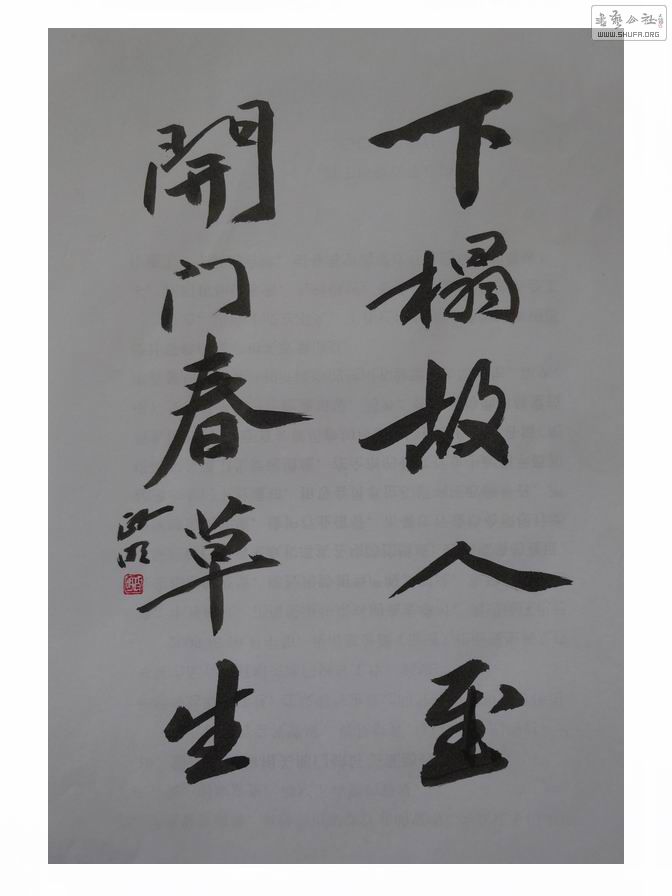 下榻故人至
開门春草生
書藝公社
WWW.SHUFA.ORG